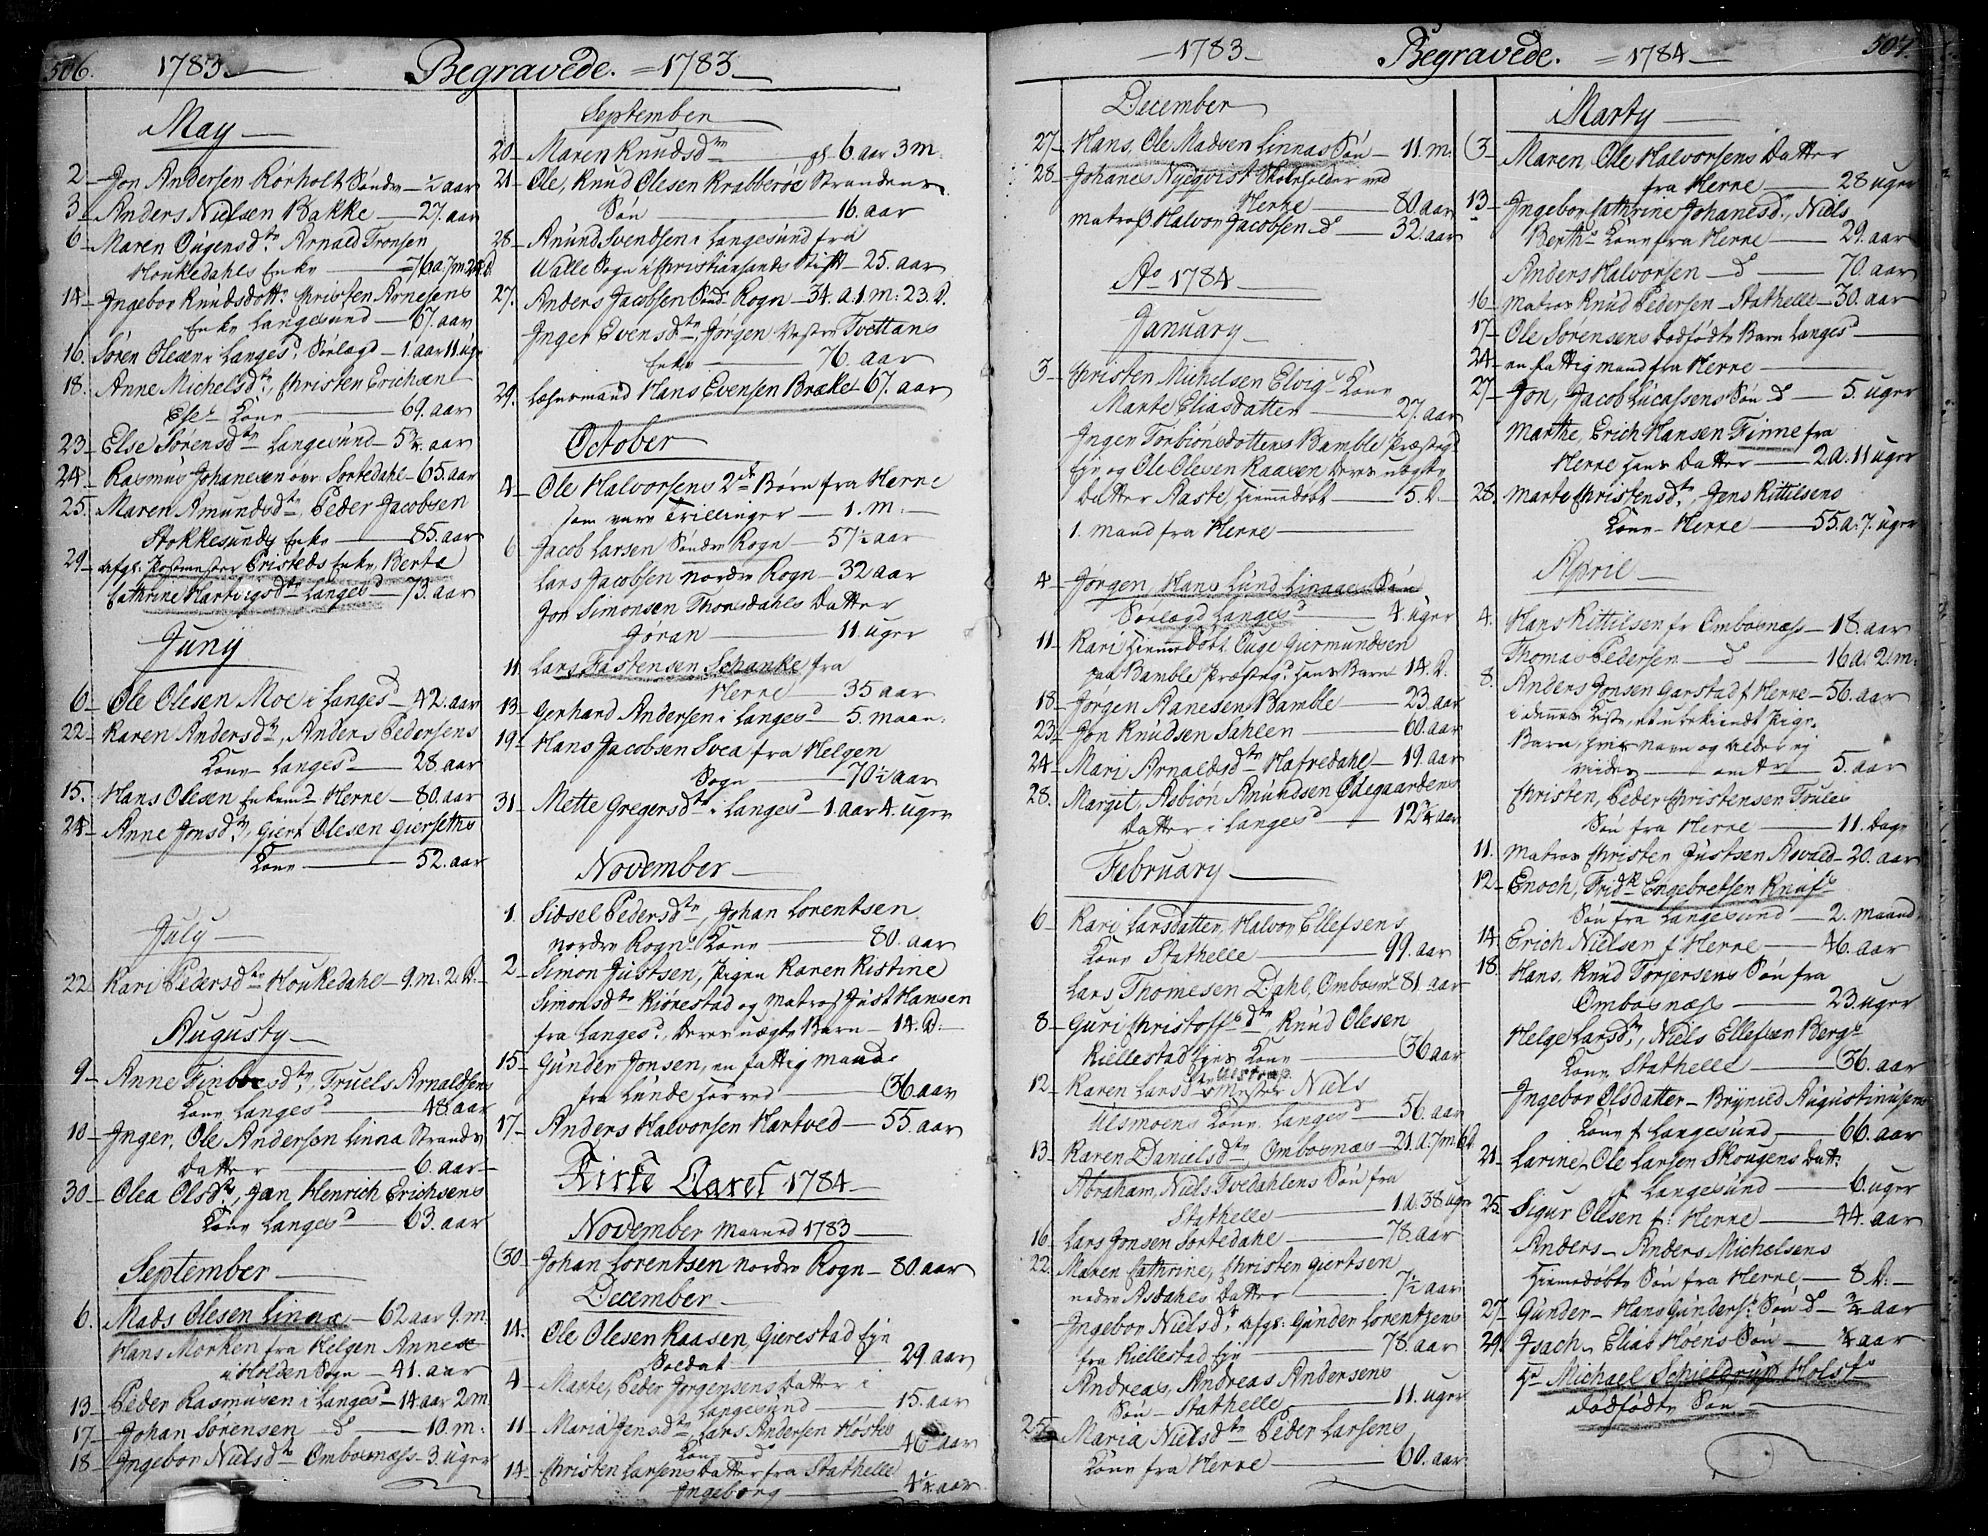 506. 1783 Begravede. 1783
May
2 Jon Andersen Rørholt Søndre ½ aar
3 Anders Nielsen Bakke 27. aar
6 Maren Ougensdtr Arnold Tronsen
Houkedahls Enke 76 a. 7 m
14 Ingebor Knudsdottr Christen Arnesens
Enke Langesund 67. aar
16. Søren Olesen i Langesd. Sørlagd 1. aar 11 uger
18. Anne Michelsdtr, Christen Erichsen
Kone 69. aar
23 Else Sørensdtr Langesund 5¾ aar
24 Rasmus Johanesen øvr. Sortedahl 65 aar
25. Maren Amundsdtr, Peder Jacobsen
Stokkesunds Enke 85. aar
29 afg: Postmester Tristeds Enke, Berte
Cathrine Hartvigsdtr Langesd 73. aar
Juny
6 Ole Olesen Moe i Langesd 42. aar
22 Karen Andersdtr, Anders Pedersens
Kone Langesd 28 aar
15. Hans Olesen Enkemd Herre 80. aar
24 Anne Jonsdtr, Giert Olesen Gierseths
Kone 52. aar
July
22. Kari Pedersdtr Houkedahl 9. m. 2. D.
Augusty
9 Anne Finboesdtr, Truels Arnaldsens
Kone Langesd 48. aar
10 Inger, Ole Andersen Linna Strande
Datter 6. aar
30 Olea Olsdtr, Jan Henrich Erichsens
Kone Langesd 63. aar
September
6. Mads Olesen Linaa 62 aar 9. m.
Hans Morken fra Helgen Annex
i Holden Sogn 41. aar
13 Peder Rasmusen i Langesd 14 aar 2 m
17 Johan Sørensen d 10. m.
18 Ingebor Nielsdtr Ombosnæss 3. uger
September
20 Maren Knudsdtr gl. 6. aar 3 m.
21 Ole, Knud Olesen Krabberøe Strandens
Søn 16. aar
28 Anund Svendsen i Langesund fra
Walle Sogn i Christiansands Stift 25. aar
27. Anders Jacobsen Sønd. Rogn 34. a. 1. m. 23. D.
Inger Evensdtr, Jørgen Vestre Tvettans
Enke 76. aar
29. Lehnsmand Hans Evensen Brække 67. aar
October
4 Ole Halvorsens 2de Børn fra Herre
som vare Trillinger 1. m.
6 Jacob Larsen Søndre Rogn 57½ aar
Lars Jacobsen nordre Rogn 32 aar
Jon Simonsen Thorsdahls Datter
Jøran 11. uger
11. Lars Fastensen Schanke fra
Herre 35 aar
13 Gerhard Andersen i Langesd 5. maan.
19 Hans Jacobsen Svea fra Helgen
Sogn 70½ aar
31 Mette Gregersdtr i Langesd 1 aar 4. uger
November
1. Sidsel Pedersdtr, Johan Lorentsen
nordre Rogns Kone 80. aar
2 Simon Justsen, Pigen Karen Kistine
Simonsdtr Kiørestad og Matros Just Hansen
fra Langesd, Deres uægte Barn 14. D.
15 Gunder Jonsen, en fattig mand
fra Lunde Herred 36. aar
17. Anders Halvorsen Hartved 55. aar
Kirke Aaret 1784
November Maaned 1783
30 Johan Lorentsen nordre Rogn 80. aar
December
14. Ole Olesen Raasen, Gierestad Eje
Soldat 29. aar
4 Marte, Peder Jørgensens Datter i
Langesund 15. aar
11 Maria Jensdtr, Lars Andersen Hostes
Kone d 46 aar
14 Christen Larsens Datter fra Stathelle
Ingeborg 4¼ aar
1783 Begravede. 1784 507.
December
27 Hans, Ole Madsen Linnas Søn 11. m.
28 Johanes Nyeqvist Skoleholder ved
Herre 80. aar
matros Halvor Jacobsen d 32. aar
Ao 1784
January
3 Christen Michelsen Elvigs Kone
Marte Eliasdatter 27. aar
Inger Torbiønsdotters Bamble Præstegd
Eje og Ole Olesen Raasen Deres uægte
Datter Aaste, Hiemmedøbt 5. D.
1. mand fra Herre
4 Jørgen, Hans Lund Linaaes Søn
Sørlagd Langesd 4. uger
11 Kari Hiemmedøbt Ouge Giermundsen
paa Bamble Præstegd Hans Barn 14. D.
18 Jørgen Aanesen Bamble 23. aar
23 Jon Knudsen Sahlen 60. aar
24 Mari Arnaldsdtr Hafredahl 19. aar
28. Margit, Asbiøn Anundsen Ødegaardens
Datter i Langesd 12¾ aar
February
6 Kari Larsdatter, Halvor Ellefsens
Kone Stathelle 99. aar
Lars Thomesen Dahl, Ombosns 81. aar
8 Guri Christoffsdtr, Knud Olesen
Kiellestad Ejes Kone 36 aar
12 Karen Larsdtr Mester Niels
Ulsmoens Kone, Langesd 56. aar
13 Karen Danielsdtr, Ombosnæs 21. a. 7 m. 6 D
Abraham, Niels Tvedahlens Søn fra
Stathelle 1. a. 38. uger
16 Lars Jonsen Sortedahl 78. aar
22. Maren Cathrine, Christen Giertsen
nedre Aasdahls Datter 7½ aar
Ingebor Nielsdr, afg: Gunder Lorentzens
fra Kiellestad Eje 78. aar
Andreas, Andreas Andersens
Søn Stathelle 11. uger
25 Maria Nielsdtr Peder Larsens
Kone fra Herre 60. aar
Marty
3 Maren, Ole Halvorsens Datter
fra Herre 28 uger
13 Ingebor Cathrine Johanesd., Niels
Berths Kone fra Herre 29. aar
Anders Halvorsen d 70. aar
16 matros Knud Pedersen Stathelle 30. aar
17 Ole Sørensens Dødfødte Barn Langesd
24 en fattig mand fra Herre
27 Jon, Jacob Lucassens Søn d 5. uger
Marthe, Erich Hansen Finne fra
Herre Hans Datter 2. a. 11 uger
28 Marte Christensdtr, Jens Kittilsens
Kone Herre 55. a. 7. uger
April
4. Hans Kittilsen fr Ombosnæss 18. aar
Thomas Pedersen d 16 a. 2 m.
8. Anders Jonsen Garstad f Herre 56. aar
i dennes Kiste, et ubekiendt Pige-
Barn, hvis navn og Alder ej
vides omtr 5. aar
Christen, Peder Christensen Toules
Søn fra Herre 11. Dage
11. Matros Christen Justsen Aavald 20. aar
12 Enoch, Fridr Engebretsen Knufs
Søn fra Langesund 2. maand
14 Erich Nielsen f Herre 46. aar
18. Hans, Knud Torjersens Søn fra
Ombosnæss 23. uger
Helge Larsdtr, Niels Ellefsen Bergs
Kone Stathelle 36. aar
Ingebor Olsdatter Bryniel Augustinusens
Kone f Langesund 66. aar
21 Larine, Ole Larsen Skougens Datt:
f Langesund 6. uger
25. Sigur Olesen f: Herre 44. aar
Anders Anders Michelsens
Hiemedøbte Søn fra Herre 8 D.
27 Gunder Hans Gunders: Søn d ¾ aar
29. Isach Elias Høens Søn ¼ aar
Hr Michael Schieldrup Holsts
Dødfødte Søn